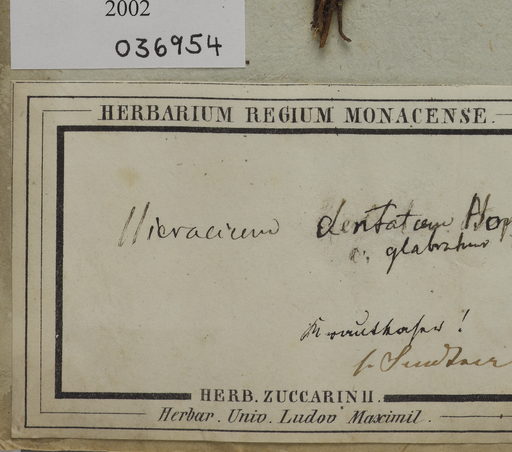 2002
036954
HERBARIUM REGIUM MONACENSE.
Hieracium dentatum Hop
c, glabratum
Krautkaser!
f. Sendtner
HERB. ZUCCARINII.
Herbar. Univ. Ludov. Maximil.